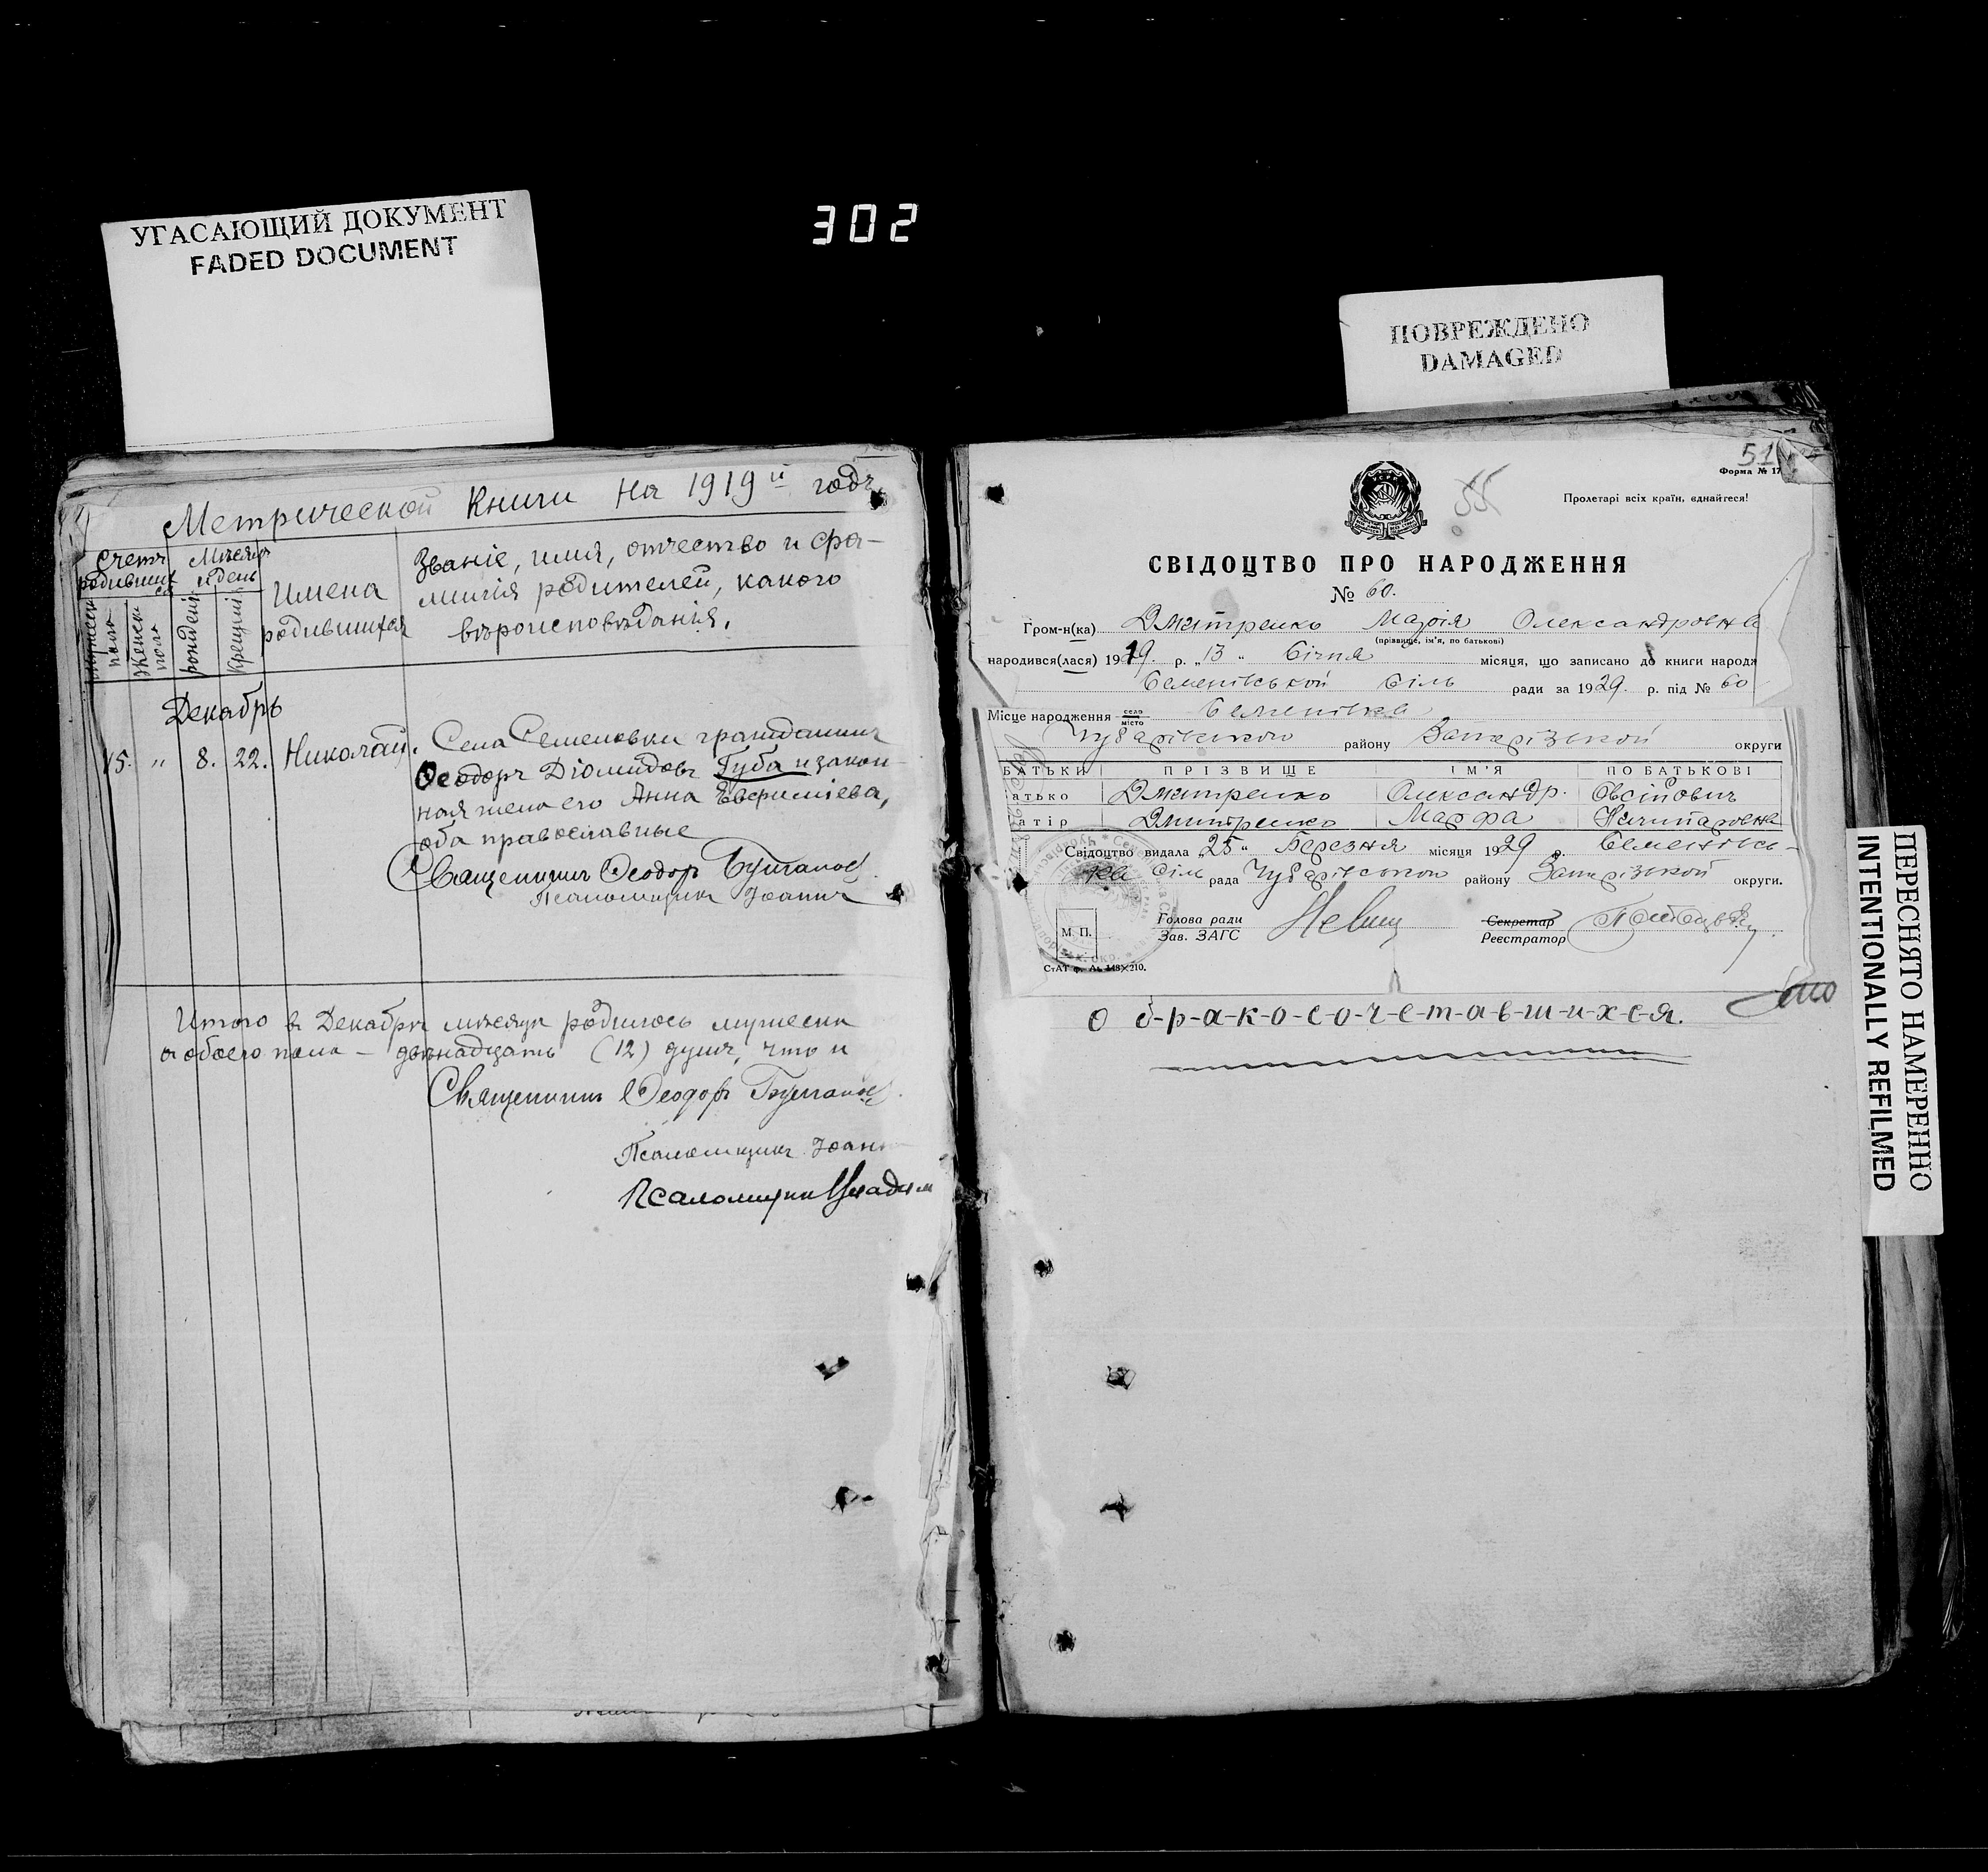 УГАСАЮЩИЙ ДОКУМЕНТ
FADED DOCUMENT
302
ПОВРЕЖДЕНО
DAMAGED
Метрической Книги на 1919й годъ
Счетъ родившихся
Мѣсяцъ и день
Имена родившихся
Званіе, имя, отчество и фа-
милія родителей, какого
вѣроисповѣданія.
пола
Женск пола
рожденія
Крещенія
Декабрь
15. " 8. 22. Николай.
Села Семеновки гражданинъ
Ѳеодоръ Діомидовъ Губа и закон-
ная жена его Анна Евфиміева,
оба православные
Священникъ Ѳеодоръ
Псаломщикъ Іоаннъ
Итого въ Декабрѣ мѣсяцѣ родилось мужеска
а обоего пола – двѣнадцать (12) душъ, что и
Священникъ Ѳеодоръ
Псаломщикъ Іоан
Псаломщик
51
Форма № 17
УСРР
55
Пролетарі всіх країн, єднайтеся!
СВІДОЦТВО ПРО НАРОДЖЕННЯ
№ 60.
Гром-н(ка) Дмитренко Марія Олександровна
(прізвище, ім'я, по батькові)
народився(лася) 1929. р. „13" Січня місяця, що записано до книги народж
Семенівської Сіль ради за 1929. р. під № 60
Місце народження село місто Семенівка
Чубарівського району Запорізької округи
БАТЬКИ ПРІЗВИЩЕ ІМ'Я ПО БАТЬКОВІ
атько Дмитренко Олександр. Овсійович
атір Дмитренко Марфа Ничипоровна
Свідоцтво видала „25" Березня місяця 1929 р. Семенівсь-
ка Сіль рада Чубарівського району Запорізької округи.
М. П.
Голова ради
Зав. ЗАГС
Секретар
Реєстратор
СтАТ ф. А5 148×210.
О б-р-а-к-о-с-о-ч-е-т-а-в-ш-и-х-с-я.
ПЕРЕСНЯТО НАМЕРЕННО
INTENTIONALLY REFILMED